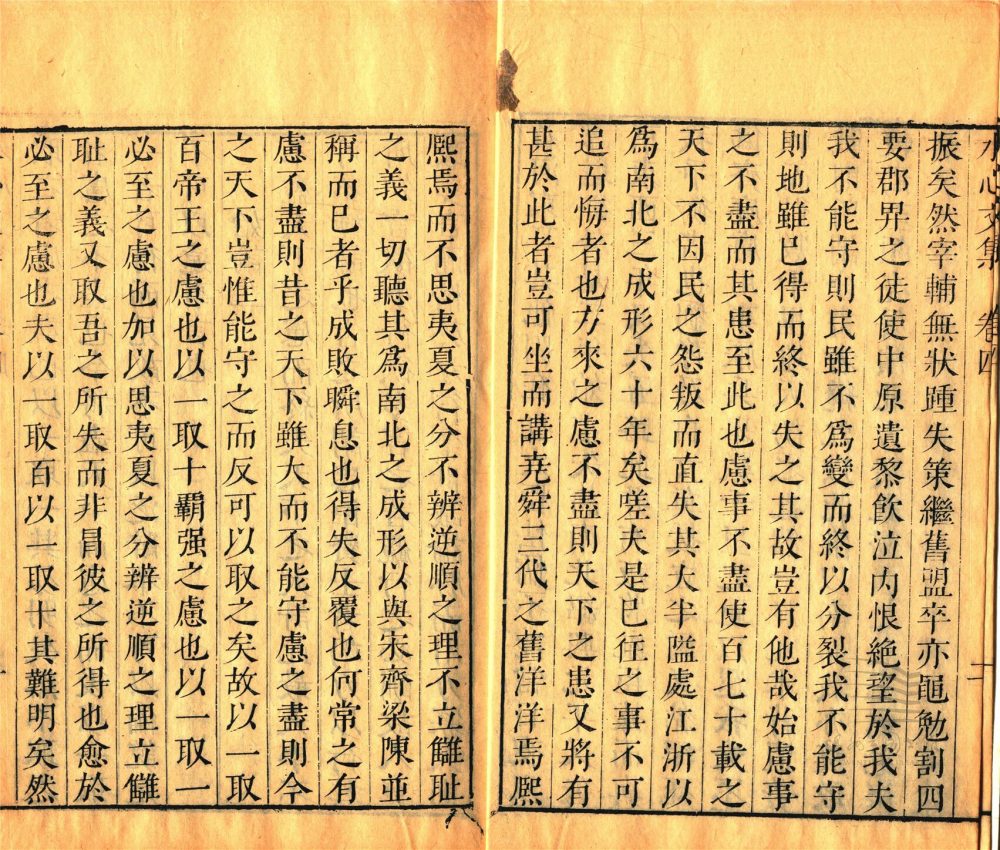 水心文集 卷四
振矣然宰輔無狀踵失策繼舊盟卒亦黽勉割四
要郡畀之徒使中原遺黎飲泣內恨絶望於我夫
我不能守則民雖不爲變而終以分裂我不能守
則地雖已得而終以失之其故豈有他哉始慮事
之不盡而其患至此也慮事不盡使百七十載之
天下不因民之怨叛而直失其大半隘處江浙以
爲南北之成形六十年矣嗟夫是已往之事不可
追而悔者也方來之慮不盡則天下之患又將有
甚於此者豈可坐而講堯舜三代之舊洋洋焉熙
熙焉而不思夷夏之分不辨逆順之理不立讎耻
之義一切聽其爲南北之成形以與宋齊梁陳並
稱而已者乎成敗瞬息也得失反覆也何常之有
慮不盡則昔之天下雖大而不能守慮之盡則今
之天下豈惟能守之而反可以取之矣故以一取
百帝王之慮也以一取十霸强之慮也以一取一
必至之慮也加以思夷夏之分辨逆順之理立讎
耻之義又取吾之所失而非冒彼之所得也愈於
必至之慮也夫以一取百以一取十其難明矣然